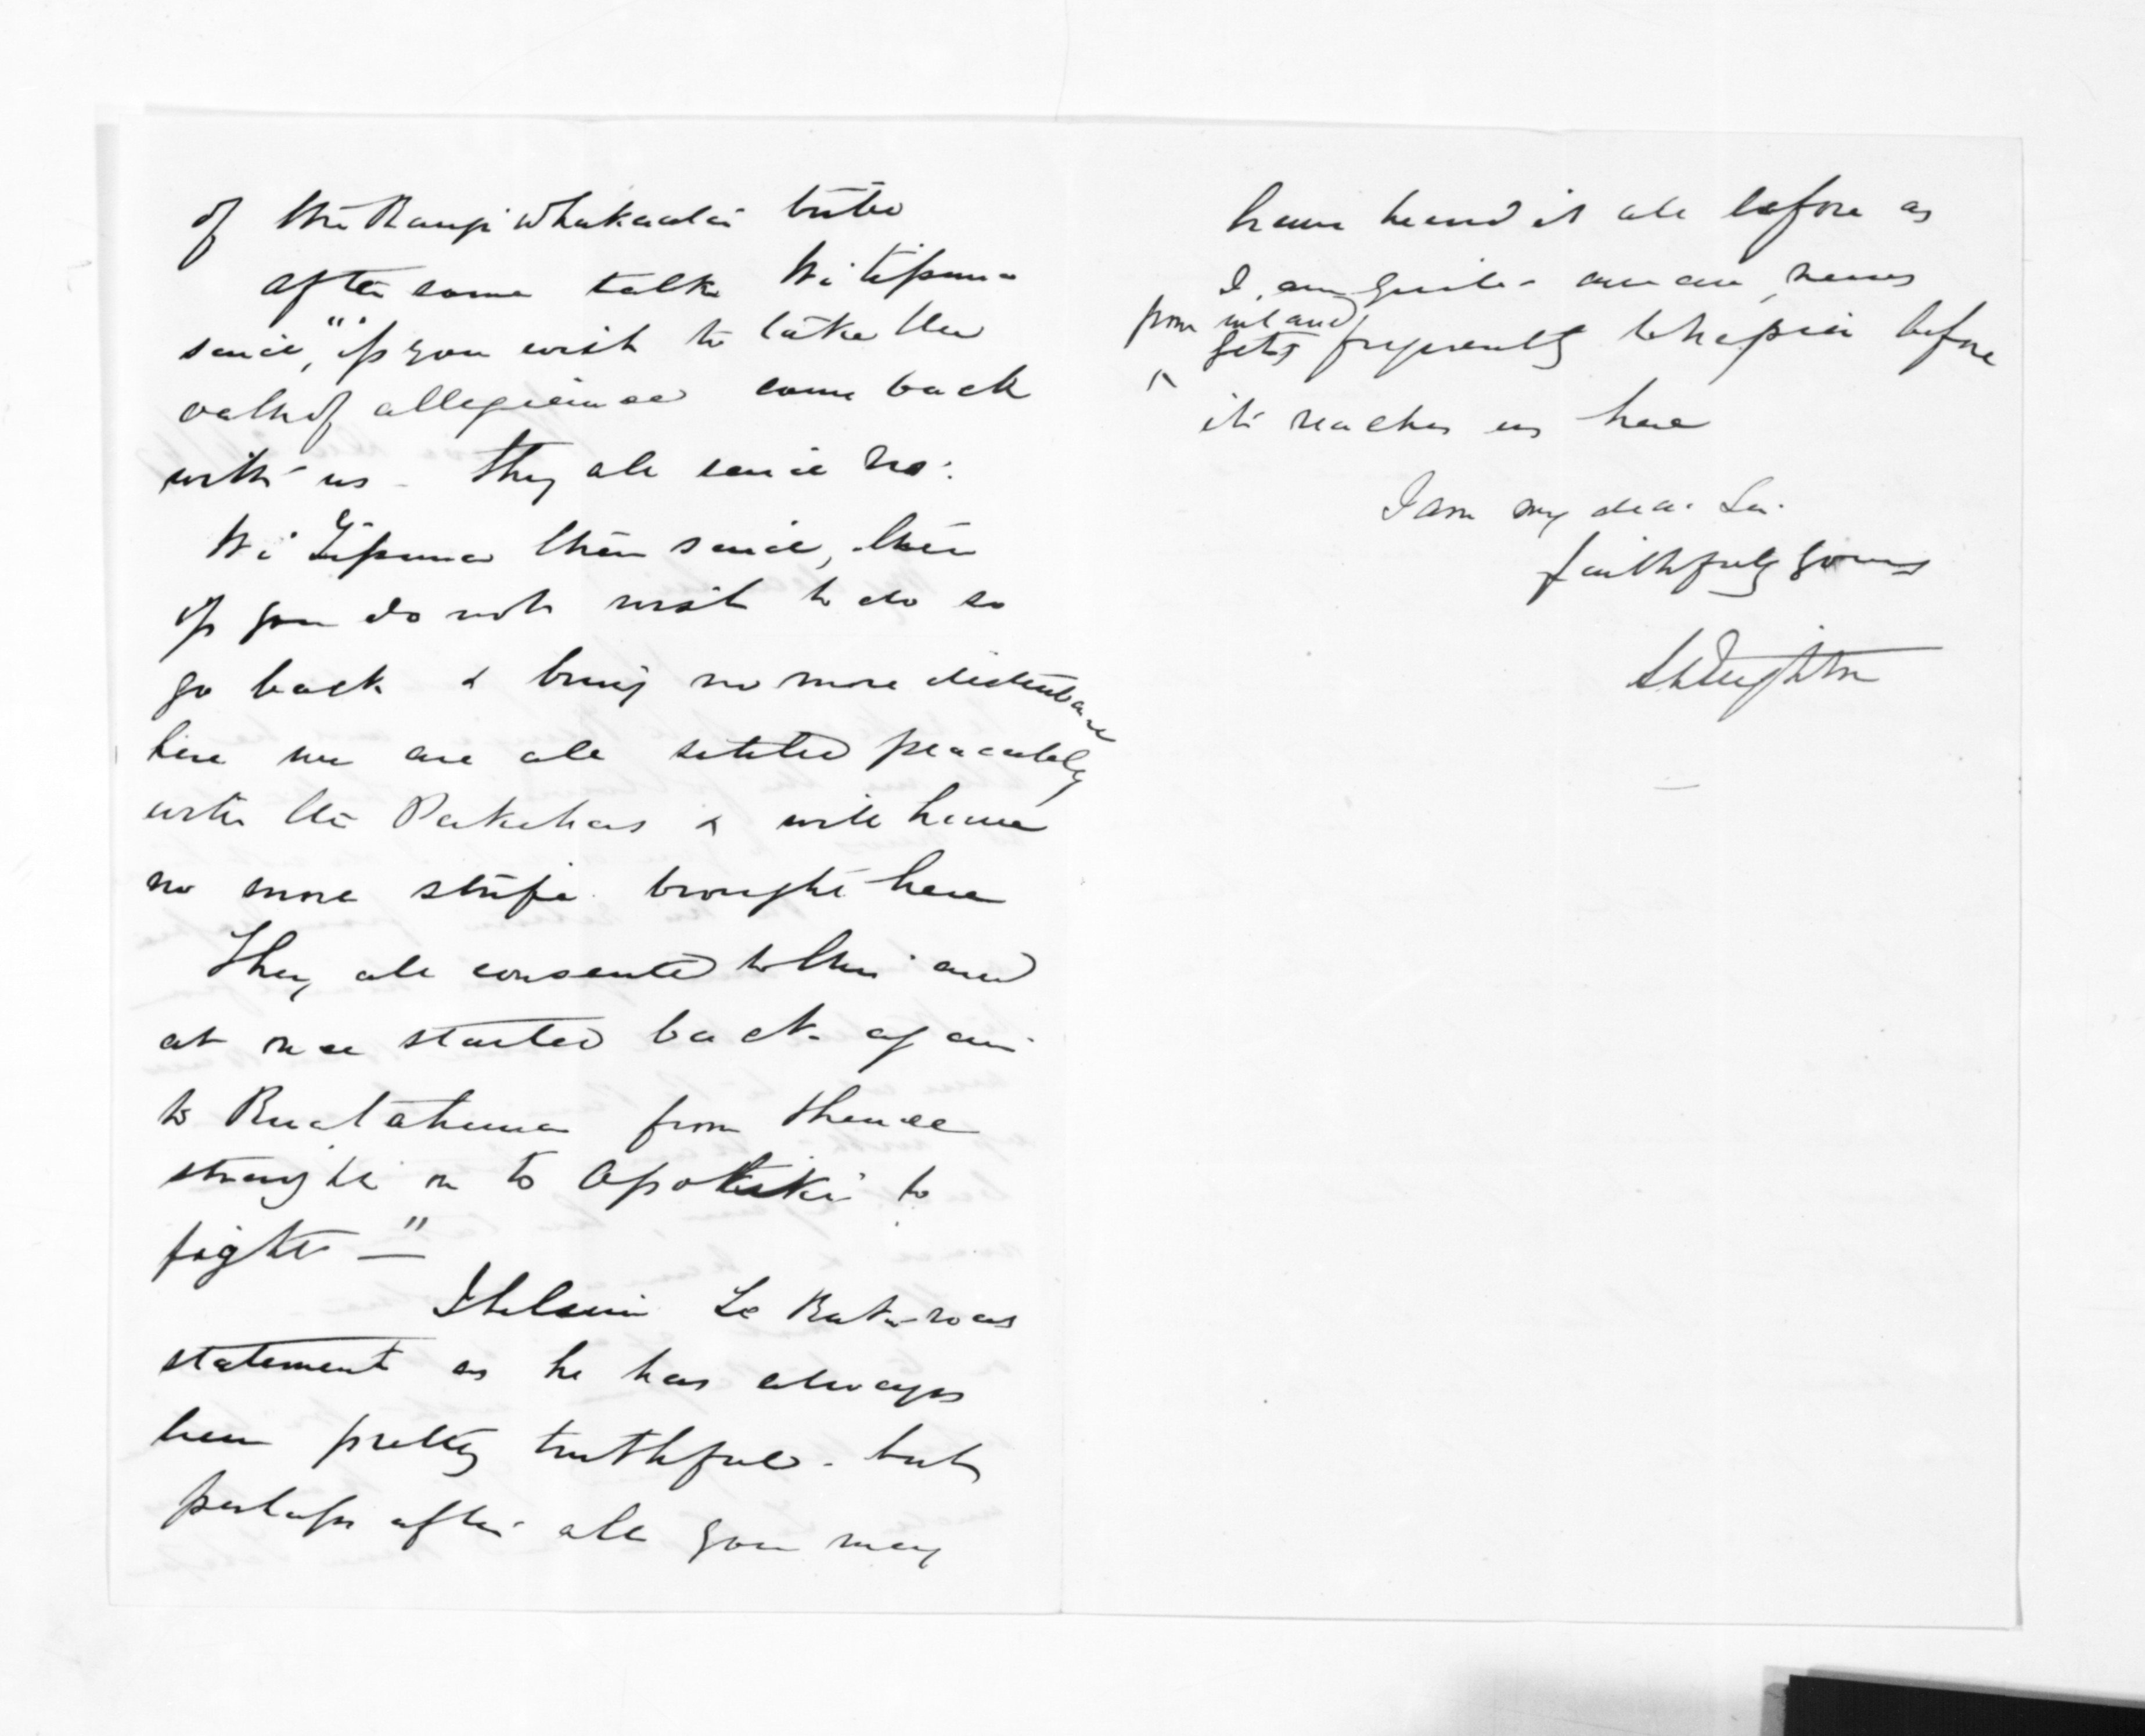 of the Rangi Whakaaetai tribe
after some talk Wi Tipuna
said, "if you wish to take the
oath of allegiance come back
with us - They all said no:
Wi Tipuna then said, then
if you do not wish to do so
go back & bring no more disturbance
here we are all settled peaceably
with the Pakehas & will have
no more strife brought here
They all consented to this and
at once started back again
to Ruatahuna from thence
straight on to Opotiki to
fight —"
I believe Te Batu-roas
statement as he has always
been pretty truthful - but
perhaps after all you may
have heard it all before as
I am quite aware, news
from inland
gets frequently to Napier before
it reaches us here
I am my dear Sir
faithfully yours
S Deighton